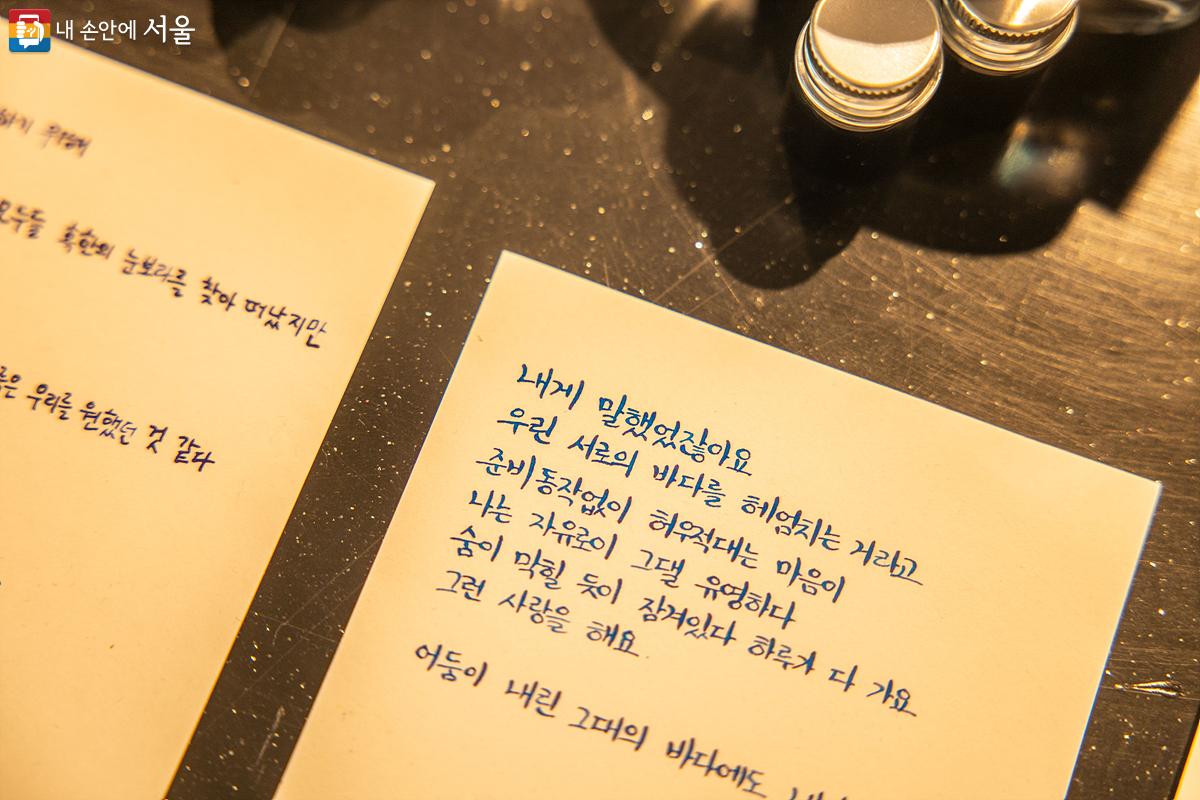 내 손안에 서울
모두들 혹한의 눈보라를 찾아 떠났지만
우리를 원했던 것 같다
내게 말했었잖아요
우린 서로의 바다를 헤엄치는 거라고
준비동작없이 허우적대는 마음이
나는 자유로이 그댈 유영하다
숨이 막힐 듯이 잠겨있다 하루가 다 가요
그런 사랑을 해요
어둠이 내린 그대의 바다에도